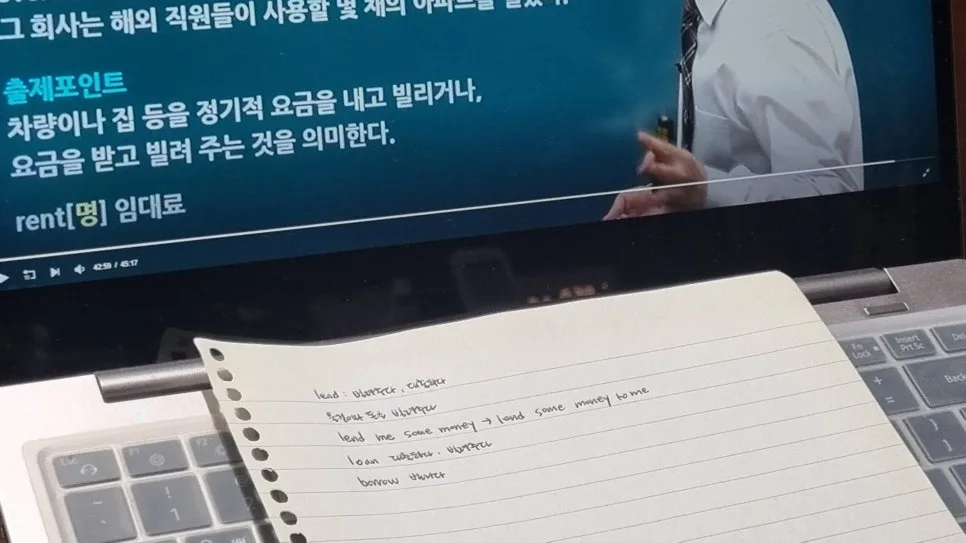 그 회사는 해외 직원들이 사용할 몇 채의 아파트를
출제포인트
차량이나 집 등을 정기적 요금을 내고 빌리거나,
요금을 받고 빌려 주는 것을 의미한다.
rent[명] 임대료
42:59 / 45:17
lend : 빌려주다, 대출하다
빌려주다
lend me some money → lend some money to me
loan 대출하다. 빌려주다
borrow 빌리다
Fn Lock
Insert
Prt Sc
Del
Back
F1
F2
+
=
~
!
1
}
]
{
[